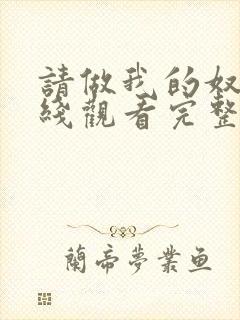 請做我的奴
綫觀看完整
蘭帝夢業魚